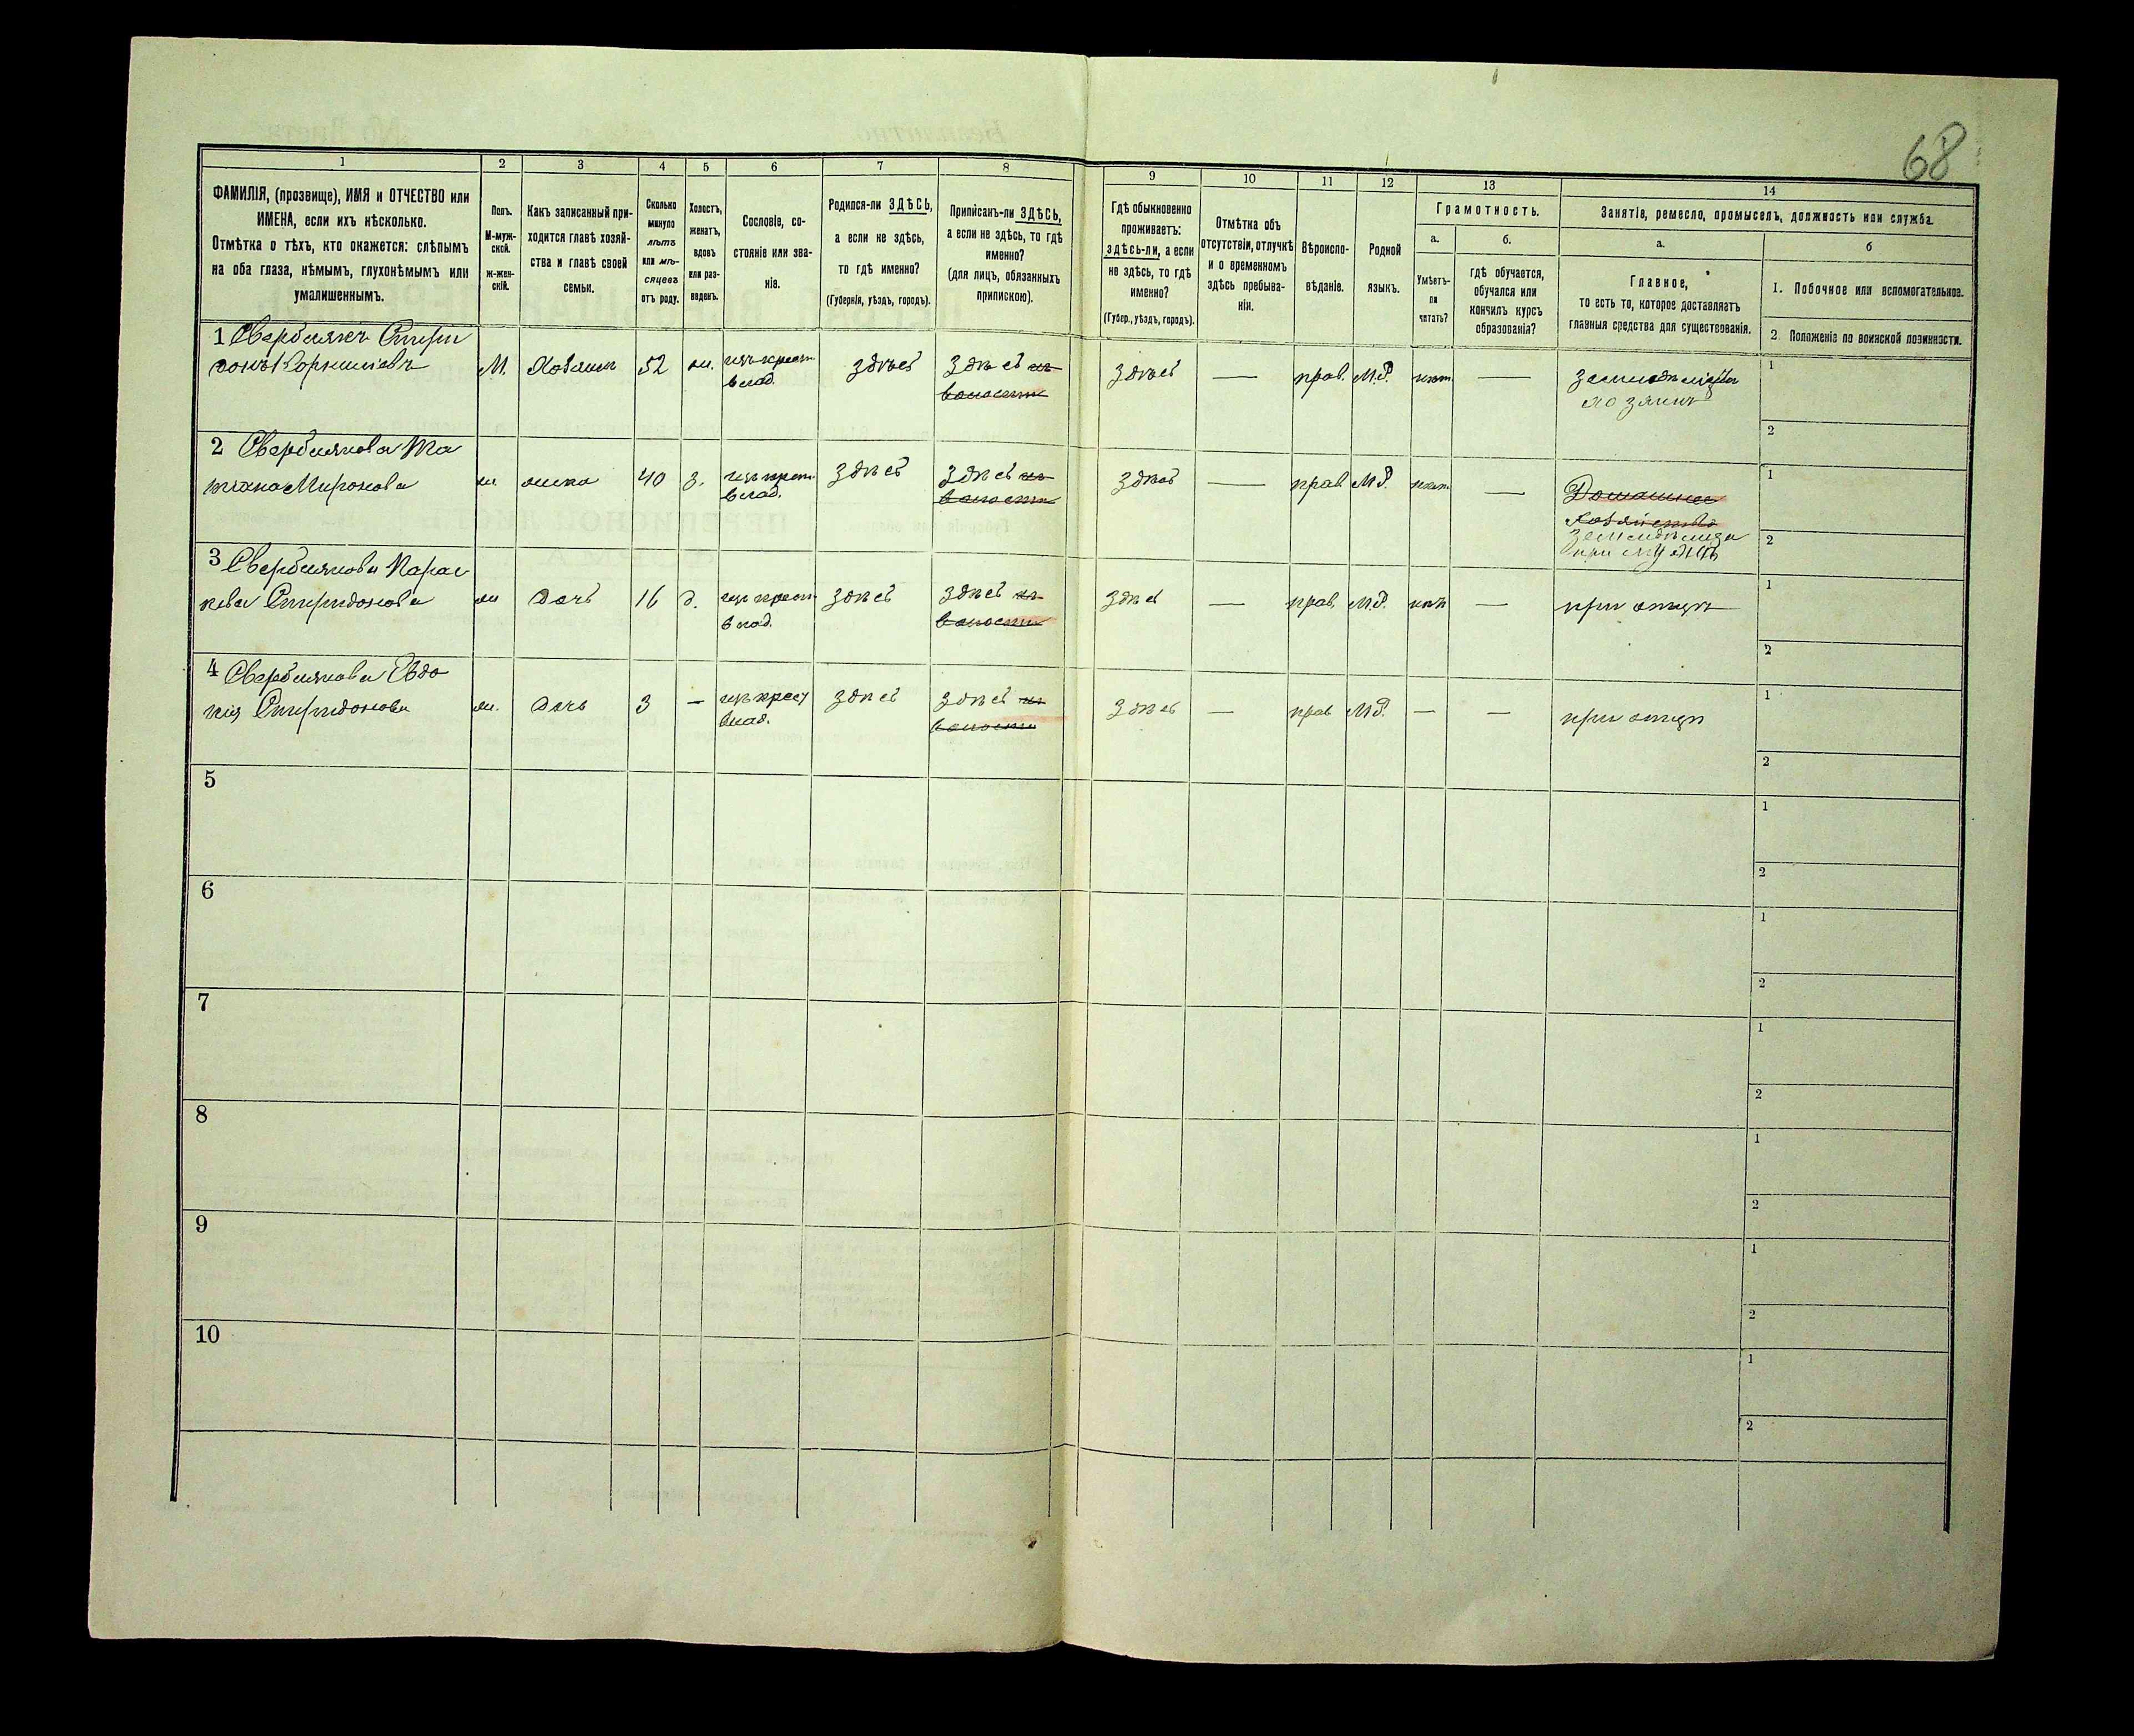 68
1 2 3 4 5 6 7 8 9 10 11 12 13 14
ФАМИЛІЯ, (прозвище), ИМЯ и ОТЧЕСТВО или
ИМЕНА, если ихъ нѣсколько.
Отмѣтка о тѣхъ, кто окажется: слѣпымъ
на оба глаза, нѣмымъ, глухонѣмымъ или
умалишеннымъ.
Полъ.
М-муж-
ской.
ж-жен-
скій.
Какъ записанный при-
ходится главѣ хозяй-
ства и главѣ своей
семьи.
Сколько
минуло
лѣтъ
или мѣ-
сяцевъ
отъ роду.
Холостъ,
женатъ,
вдовъ
или раз-
веденъ.
Сословіе, со-
стояніе или зва-
ніе.
Родился-ли ЗДѢСЬ,
а если не здѣсь,
то гдѣ именно?
(Губернія, уѣздъ, городъ).
Приписанъ-ли ЗДѢСЬ,
а если не здѣсь, то гдѣ
именно?
(для лицъ, обязанныхъ
припискою).
Гдѣ обыкновенно
проживаетъ:
ЗДѢСЬ-ЛИ, а если
не здѣсь, то гдѣ
именно?
(Губер., уѣздъ, городъ).
Отмѣтка объ
отсутствіи, отлучкѣ
и о временномъ
здѣсь пребыва-
ніи.
Вѣроиспо-
вѣданіе.
Родной
языкъ.
Грамотность.
а.
Умѣетъ-
ли
читать?
б.
гдѣ обучается,
обучался или
кончилъ курсъ
образованія?
Занятіе, ремесло, промыселъ, должность или служба.
а.
Главное,
то есть то, которое доставляетъ
главныя средства для существованія.
б
1. Побочное или вспомогательное.
2 Положеніе по воинской повинности.
1 Свербилякъ Спири
донъ Корниліевъ
М. Хозяинъ 52 жен. изъ крест.
влад.
здѣсь
здѣсь
волости
здѣсь — прав. М.Р. нѣт. —
земледѣлецъ
хозяинъ
1
2
2 Свербилякова Та
тіана Миронова
ж жена 40 з. изъ крест.
влад.
здѣсь
здѣсь
волости
здѣсь — прав М.Р. нѣт. —
Домашнее
хозяйство
земледѣлица
при мужѣ
1
2
3 Свербилякова Парас
кева Спиридонова
ж дочь 16 д. изъ крест
влад.
здѣсь
здѣсь
волости
здѣсь — прав. М.Р. нѣт —
при отцѣ
1
2
4 Свербилякова Евдо
кія Спиридонова
ж. дочь 3 — изъ крест
влад.
здѣсь
здѣсь
волости
здѣсь — прав М.Р. — —
при отцѣ
1
2
5
1
2
6
1
2
7
1
2
8
1
2
9
1
2
10
1
2